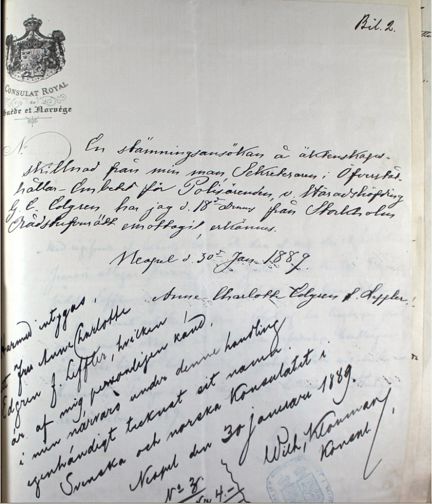 Bil. 2.
CONSULAT ROYAL
de
Suède et Norvège
En stämningsansökan å äktenskaps-
skillnad från min man Sekreteraren i Öfverståt-
hållar-Embetet för Polisärenden, v. Häradshöfding
G. E. Edgren har jag d. 18de dennes från Stockholms
Rådstufvurätt emottagit, erkännes.
Neapel d. 30de Jan. 1889.
Anne-Charlotte Edgren f. Leffler.
Härmed intygas,
att Fru Anne Charlotte
Edgren f. Leffler, hvilken
är af mig personligen känd,
i min närvaro under denna handling
egenhändigt tecknat sitt namn.
Svenska och norska Konsulatet i
Neapel den 30 januari 1889.
Wilh. Klouman
Konsul.
No 3